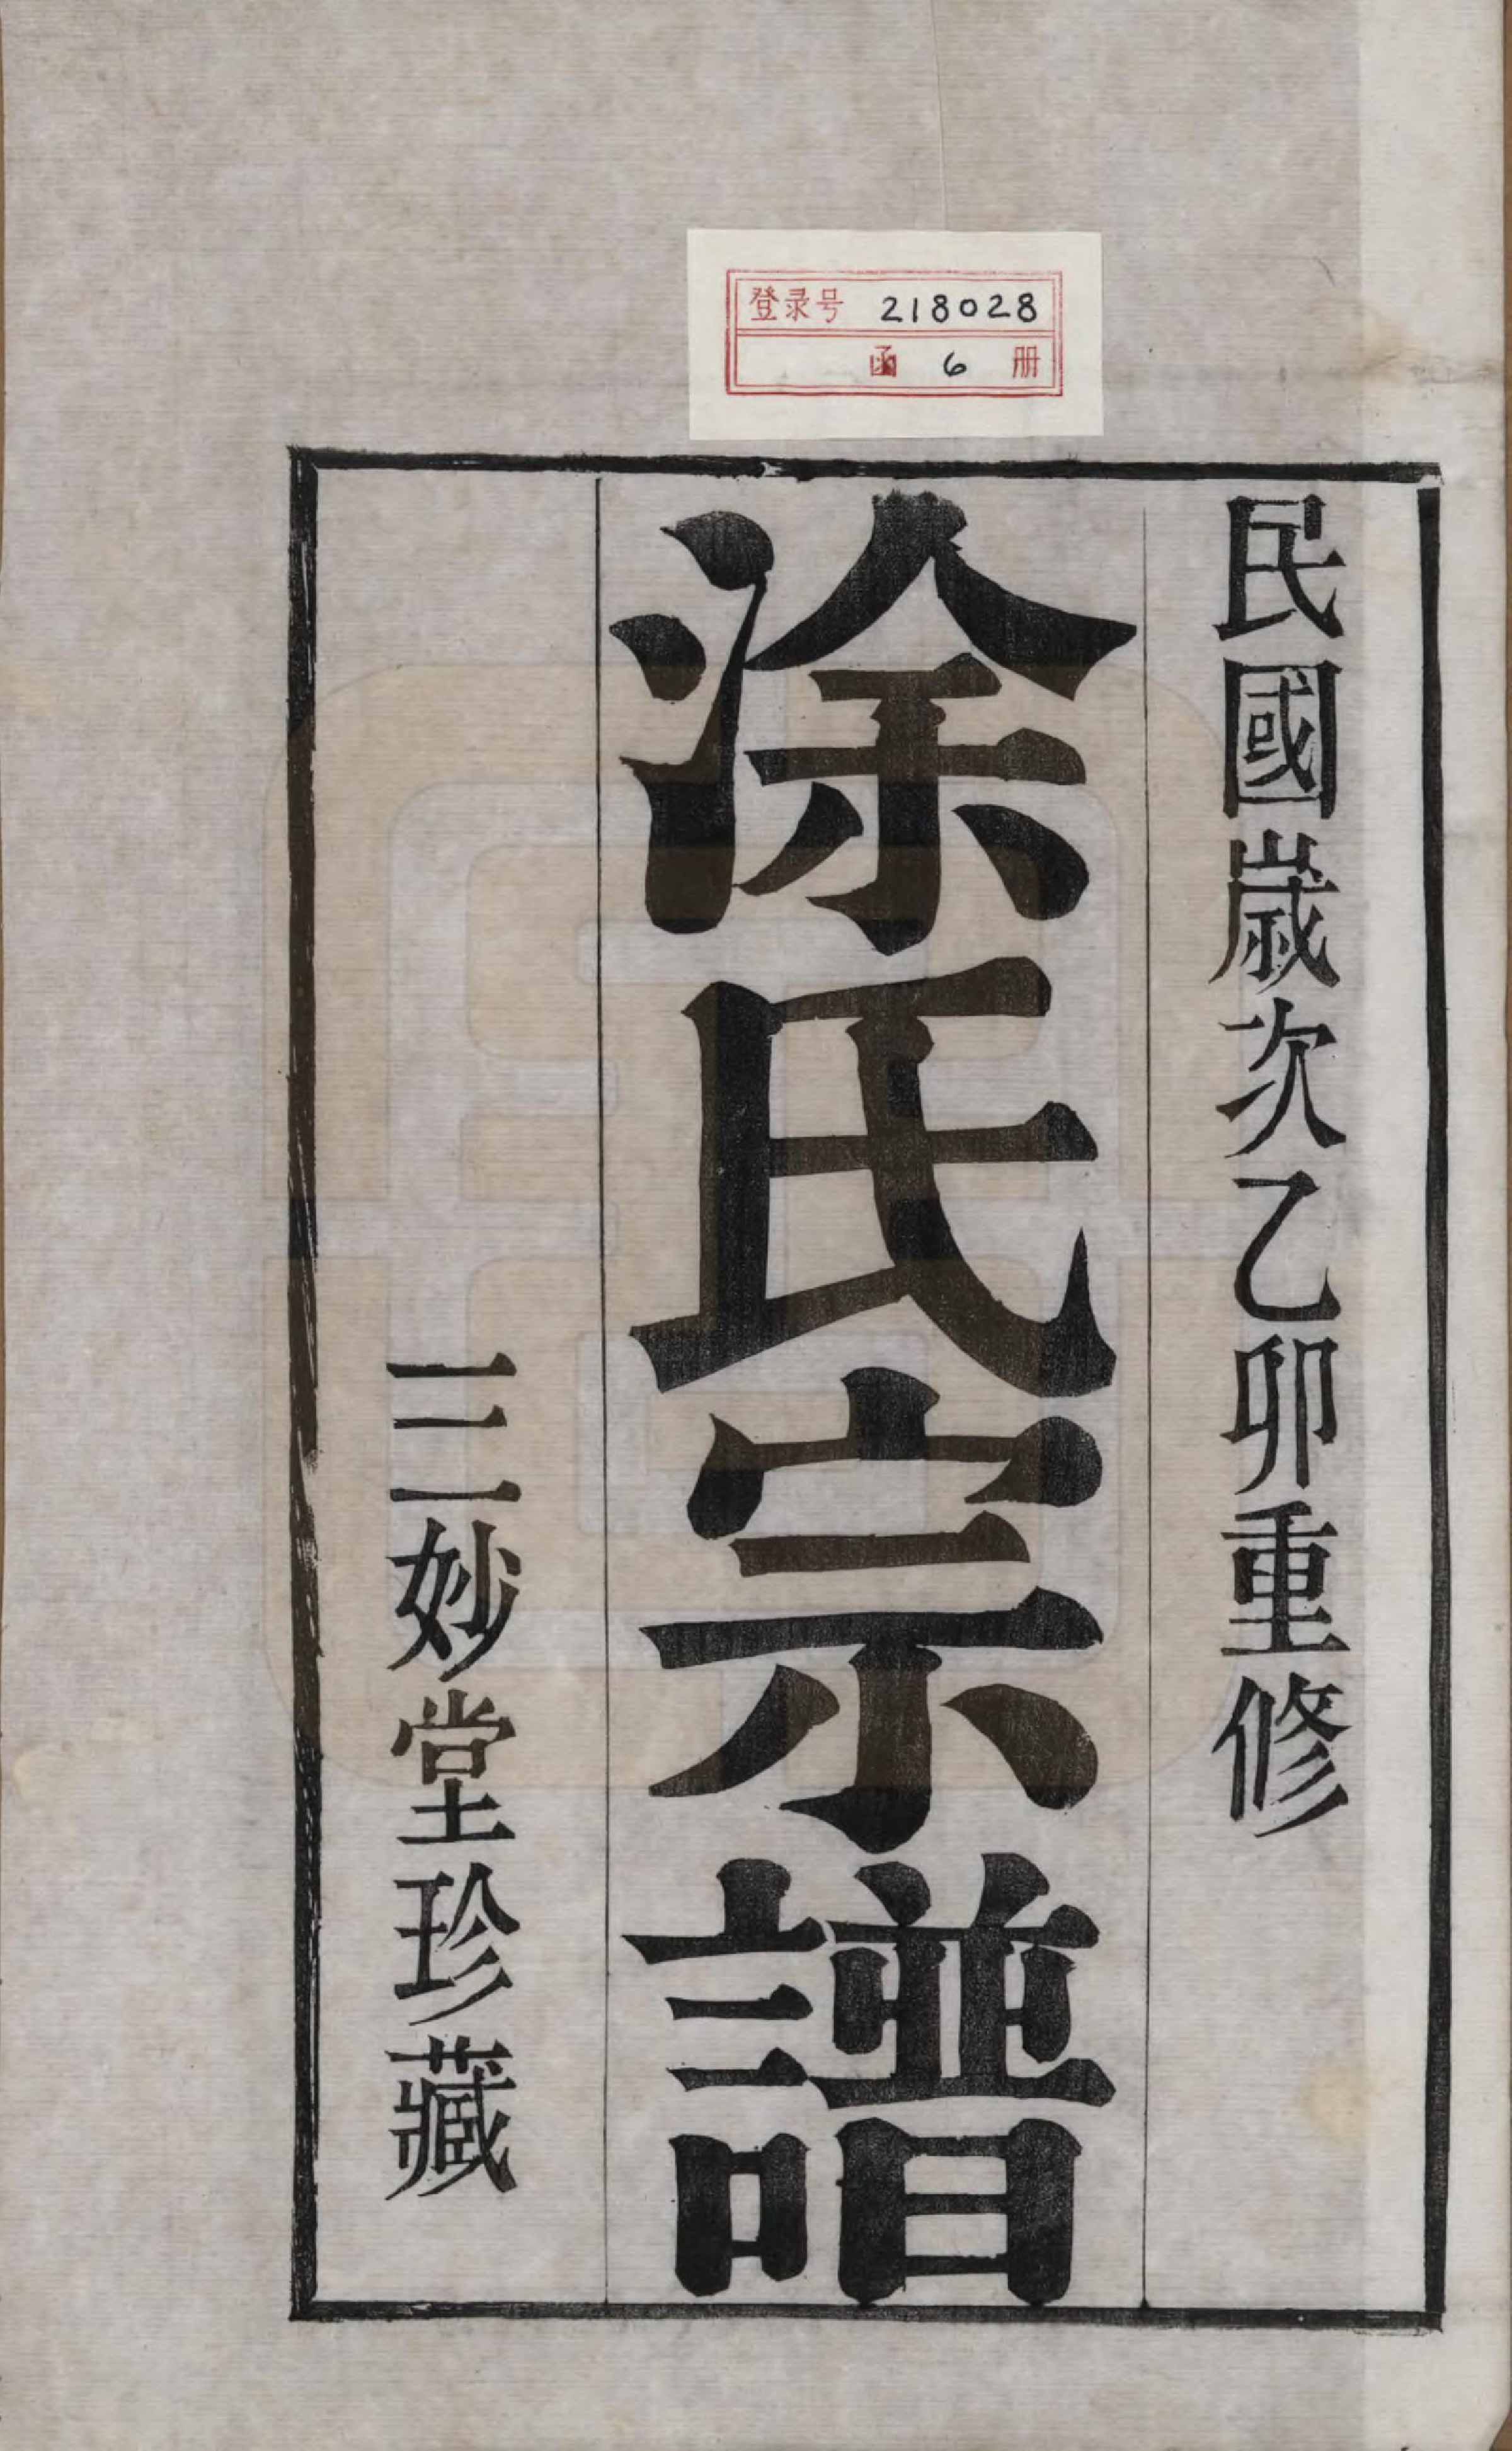 登录号 218028
函 6 册
民國歲次乙卯重修
涂氏宗譜
三妙堂珍藏